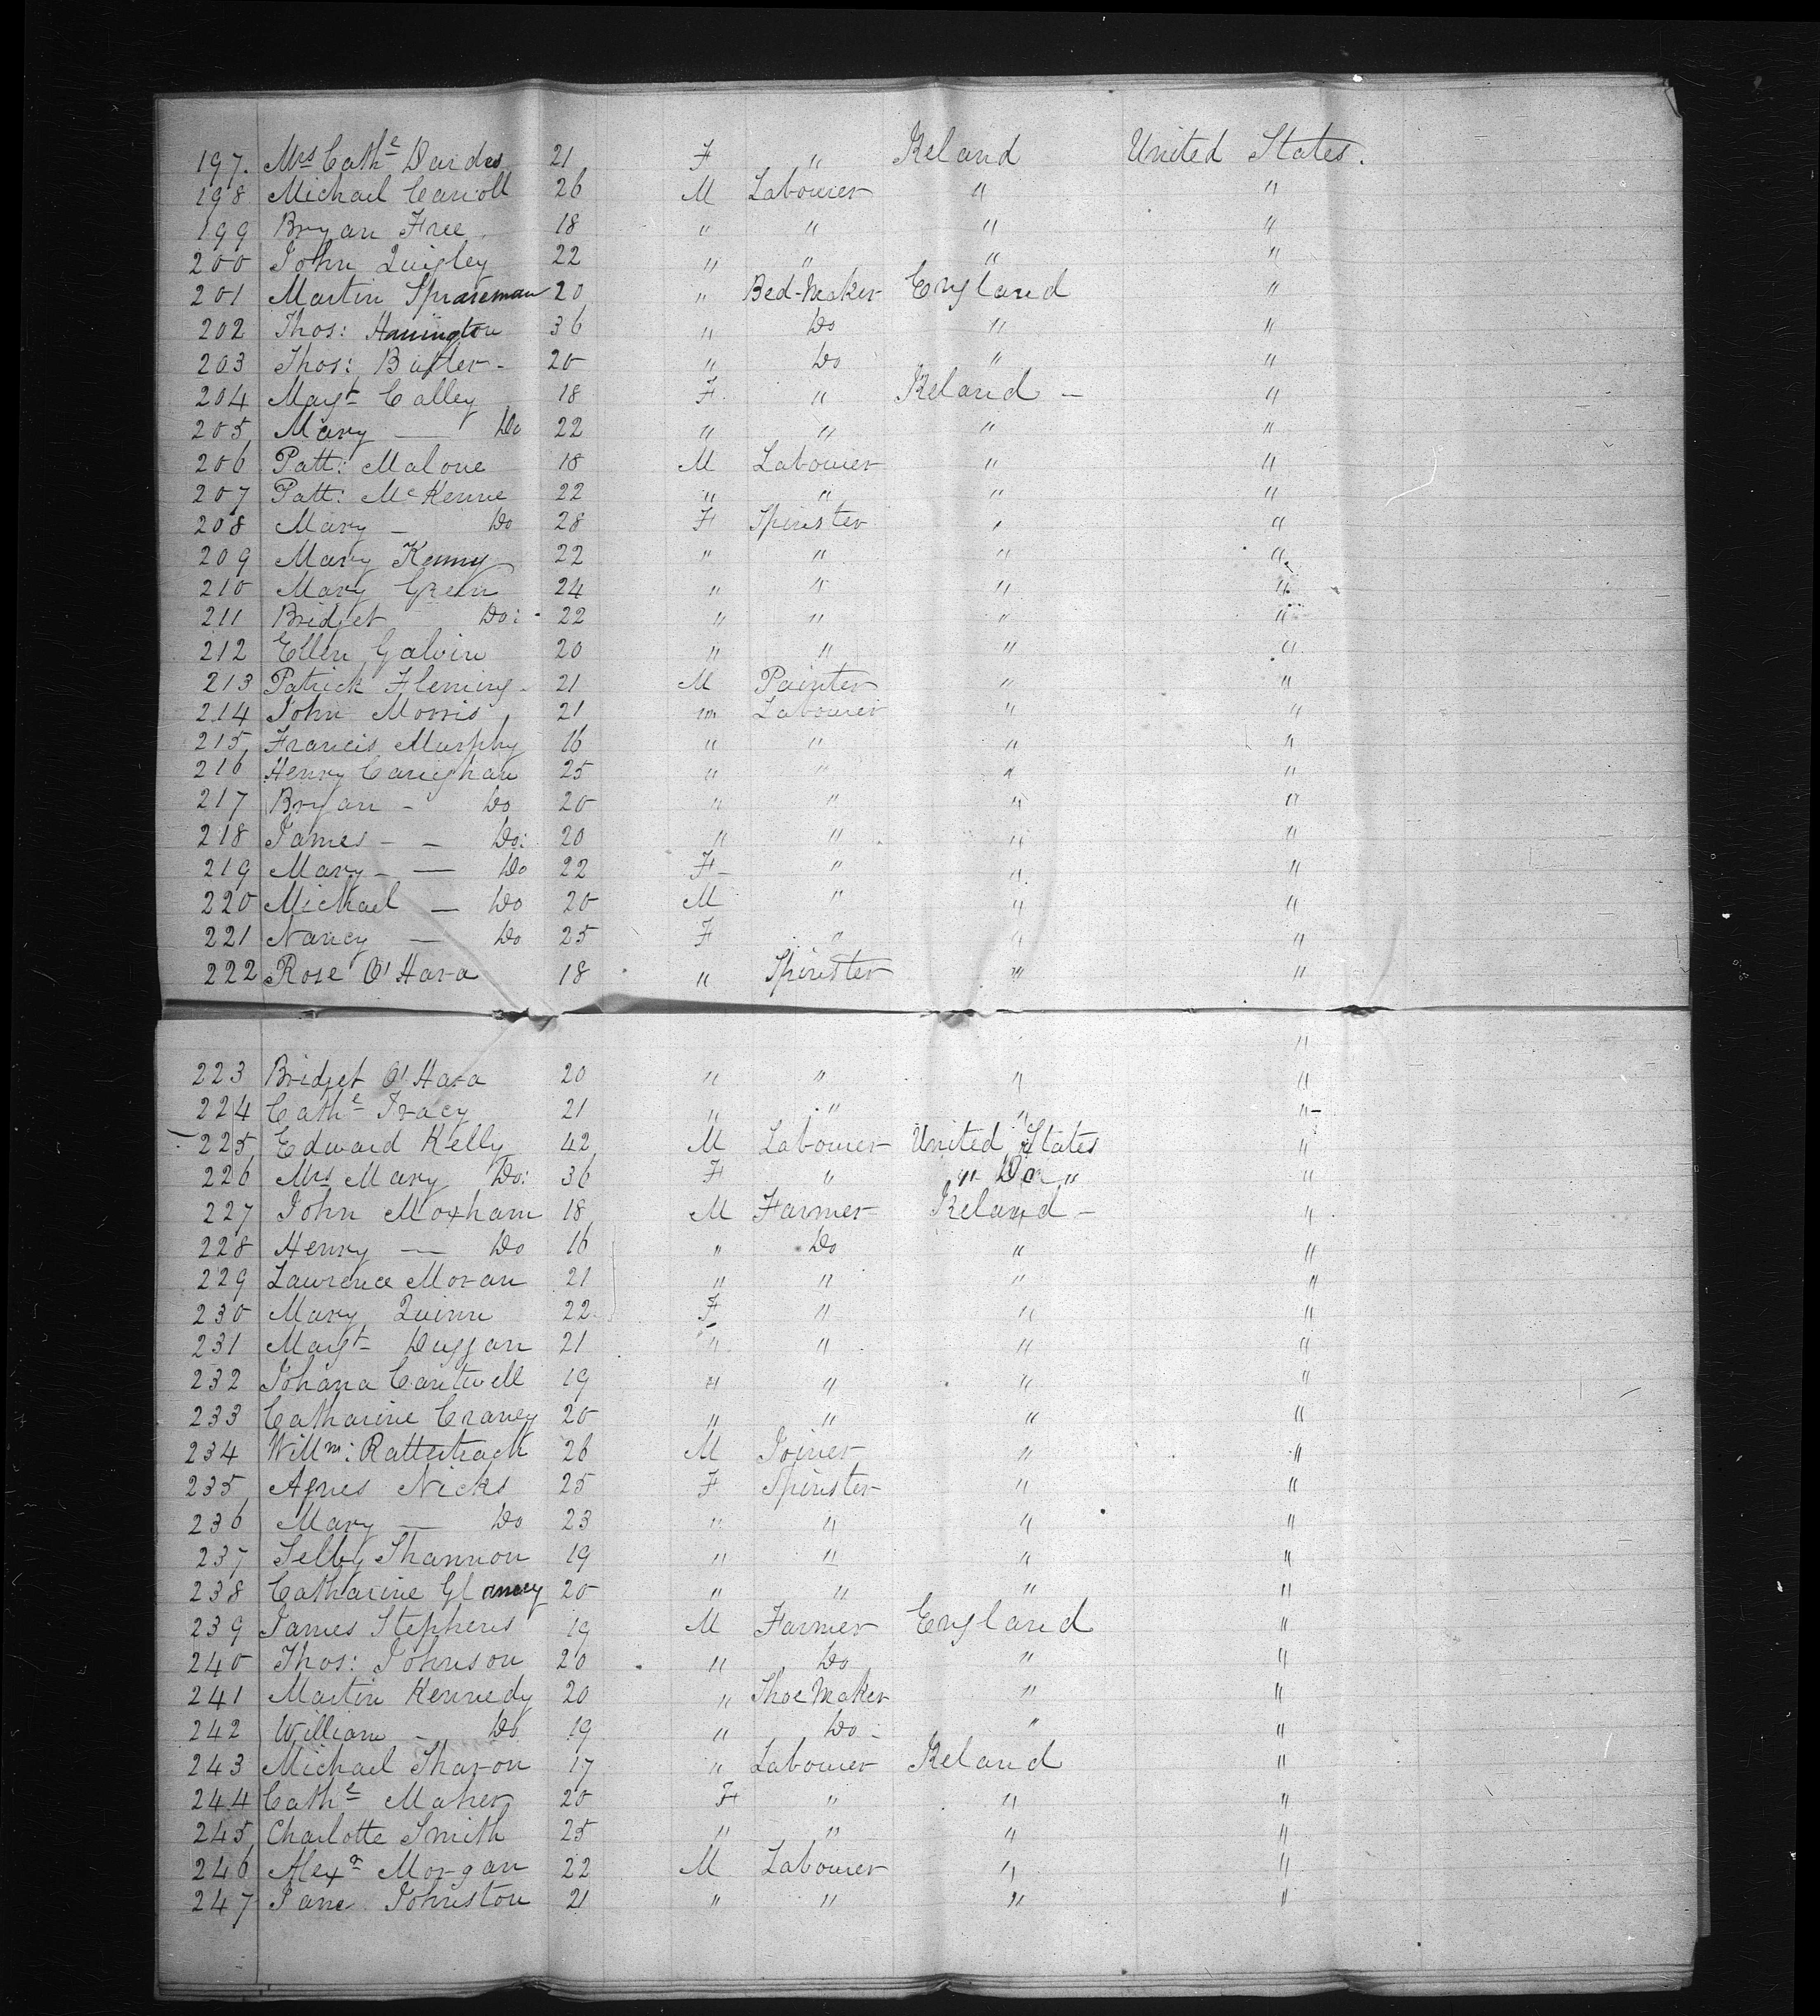 197. Mrs Cathe Dardes 21 F " Ireland United States.
198 Michael Carroll 26 M Labourer " "
199 Bryan Free 18 " " " "
200 John Quigley 22 " " " "
201 Martin 20 " Bed-Maker England "
202 Thos: Harrington 36 " Do " "
203 Thos: Butler - 20 " Do " "
204 Magt Calley 18 F " Ireland - "
205 Mary — Do 22 " " " "
206 Patt: Malone 18 M Labourer " "
207 Patt: McKenne 22 " " " "
208 Mary - Do 28 F Spinster " "
209 Mary Kenny 22 " " " "
210 Mary Green 24 " " " "
211 Bridget Do: - 22 " " " "
212 Ellen Galvin 20 " " " "
213 Patrick Fleming - 21 M Painter " "
214 John Morris 21 m Labourer " "
215 Francis Murphy 16 " " " "
216 Henry Carighan 25 " " " "
217 Bryan - Do 20 " " " "
218 James - - Do: 20 " " " "
219 Mary - — Do 22 F - " " "
220 Michael — Do 20 M " " "
221 Nancy — Do 25 F " " "
222 Rose O'Hara 18 " Spinster " "
"
223 Bridget O'Hara 20 " " " "
224 Cathe Tracy 21 " " " " -
- 225 Edward Kelly 42 M Labourer United States "
226 Mrs Mary Do: 36 F " " Do " "
227 John Moxham 18 M Farmer Ireland - "
228 Henry — Do 16 " Do " "
229 Lawrence Moran 21 " " " "
230 Mary Quinn 22 F " " "
231 Magt Duggan 21 " " " "
232 Johana Cantwell 19 " " " "
233 Catharine Craney 20 " " " "
234 Willm: 26 M Joiner " "
235 Agnes Nicks 25 F Spinster " "
236 Mary — Do 23 " " " "
237 Selby Shannon 19 " " " "
238 Catharine Glancey 20 " " " "
239 James Stephens 19 M Farmer England "
240 Thos: Johnson 20 " Do " "
241 Martin Kennedy 20 " Shoe Maker " "
242 William - Do 19 " Do - " "
243 Michael Sharon 17 " Labourer Ireland "
244 Cathe Maher 20 F " " "
245 Charlotte Smith 25 " " " "
246 Alexr Morgan 22 M Labourer " "
247 Jane Johnston 21 " " " "